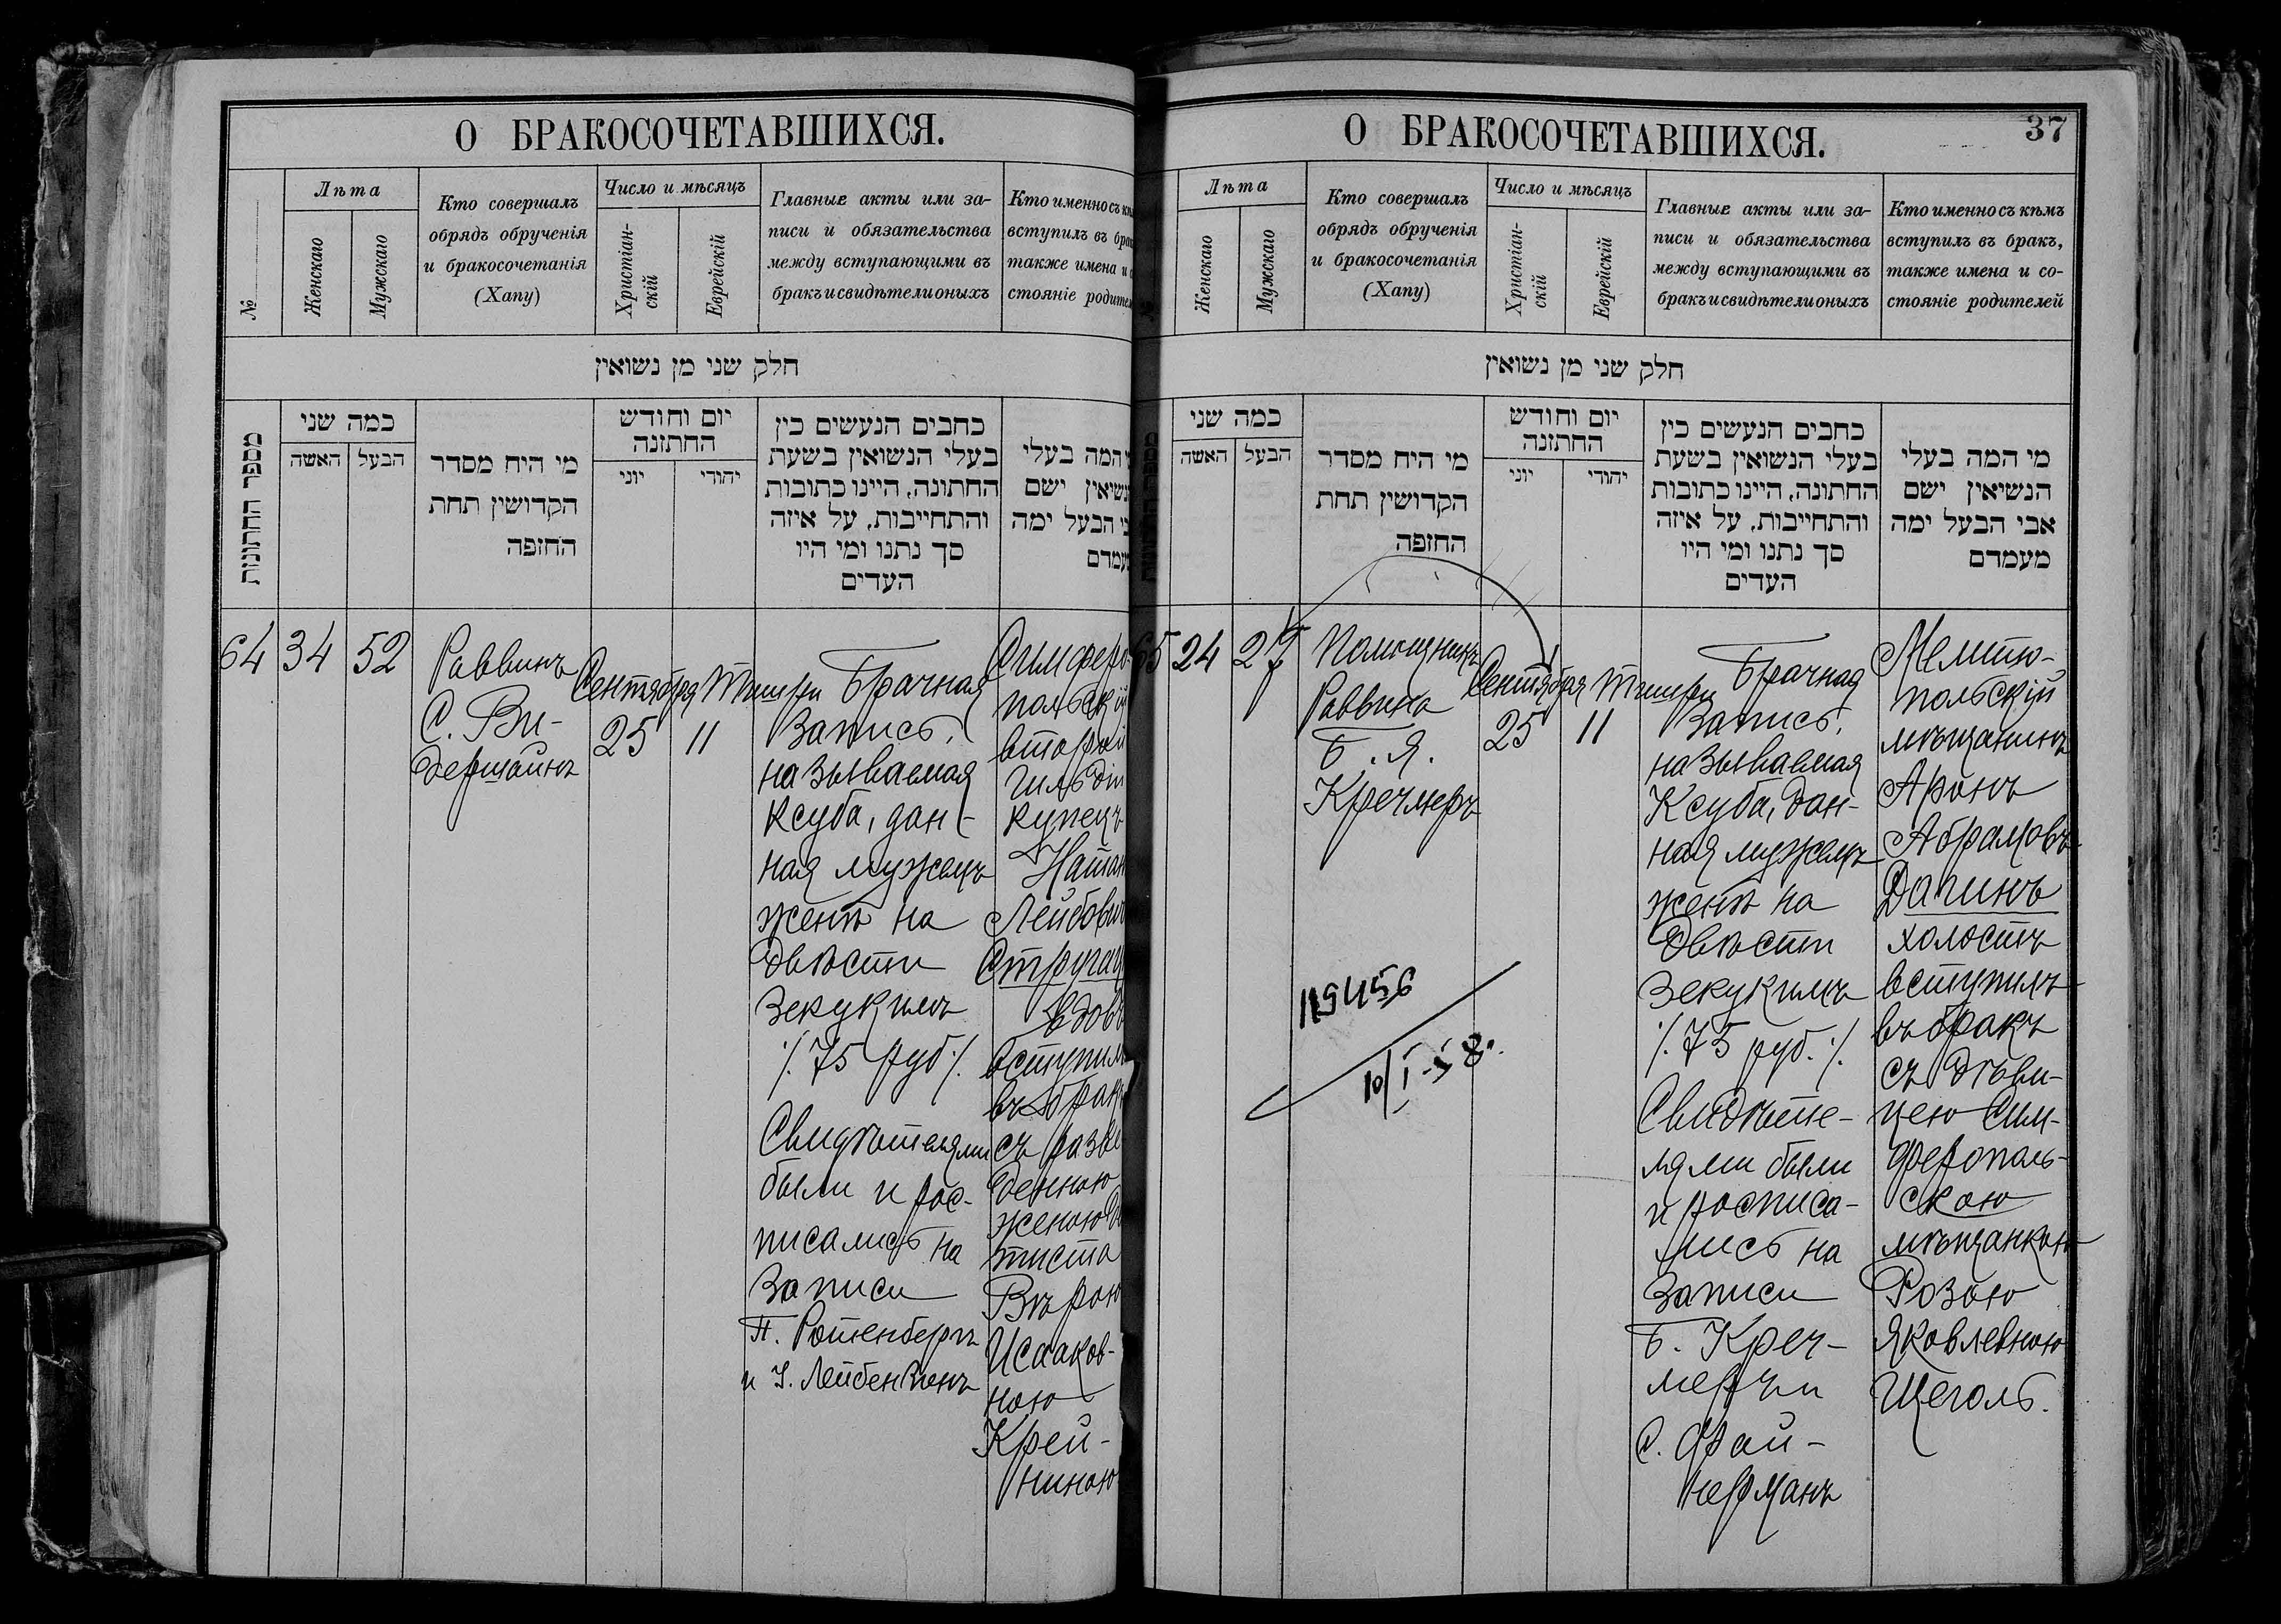 О БРАКОСОЧЕТАВШИХСЯ.
№
Лѣта
Женскаго
Мужскаго
Кто совершалъ
обрядъ обрученія
и бракосочетанія
(Хапу)
Число и мѣсяцъ
Христіан-
скій
Еврейскій
Главные акты или за-
писи и обязательства
между вступающими въ
бракъ и свидѣтели оныхъ
Кто именно съ
вступилъ въ
также имена и
стояніе
חלק שני מן נשואין
מספר החתונות
כמה שני
האשה
הבעל
מי היה מסדר
הקדושין תחת
החופה
יום וחודש
החתונה
יוני
יהודי
כתבים הנעשים בין
בעלי הנשואין בשעת
החתונה, היינו כתובות
והתחייבות, על איזה
סך נתנו ומי היו
העדים
המה בעלי
ישם
הבעל ימה
64
34
52
Раввинъ
С. Ви-
дерштайнъ
Сентября
25
Тишри
11
Брачная
Запись,
называемая
Ксуба, дан-
ная мужемъ
женѣ на
двѣсти
Зекукимъ
/. 75 руб /.
Свидѣтелями
были и рос-
писались на
Записи
П. Ротенбергъ
и І. Лейбензонъ
Симферо-
польскій
второй
гильдіи
купецъ
Натан
Лейбович
вдов
вступил
въ бракъ
съ разве
денною
женою
тиста
Вѣрою
Исааков-
ною
Крей-
ниною
О БРАКОСОЧЕТАВШИХСЯ.
37
Лѣта
Женскаго
Мужскаго
Кто совершалъ
обрядъ обрученія
и бракосочетанія
(Хапу)
Число и мѣсяцъ
Христіан-
скій
Еврейскій
Главные акты или за-
писи и обязательства
между вступающими въ
бракъ и свидѣтели оныхъ
Кто именно съ кѣмъ
вступилъ въ бракъ,
также имена и со-
стояніе родителей
חלק שני מן נשואין
כמה שני
האשה
הבעל
מי היה מסדר
הקדושין תחת
החופה
יום וחודש
החתונה
יוני
יהודי
כתבים הנעשים בין
בעלי הנשואין בשעת
החתונה, היינו כתובות
והתחייבות, על איזה
סך נתנו ומי היו
העדים
מי המה בעלי
הנשיאין ישם
אבי הבעל ימה
מעמדם
65
24
27
Помощникъ
Раввина
Б. Я.
Кречмеръ
Сентября
25
Тишри
11
Брачная
Запись,
называемая
Ксуба, дан-
ная мужемъ
женѣ на
двѣсти
Зекукимъ
/. 75 руб. /.
Свидѣте-
лями были
и росписа-
лись на
Записи
Б. Креч-
меръ и
С. Фай-
нерманъ
Мелито-
польскій
мѣщанинъ
Аронъ
Абрамовъ
Дагинъ
холостъ
вступилъ
въ бракъ
съ дѣви-
цею Сим-
ферополь-
скою
мѣщанкою
Розою
Яковлевною
Щеголь.
10/I-58.